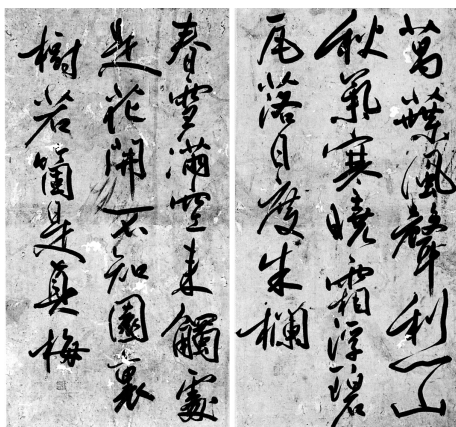 萬葉風聲利一山
秋氣寒曉霜浮碧
瓦落日度朱欄
春雪滿空来觸處
是花開不知園裏
樹若箇是真梅